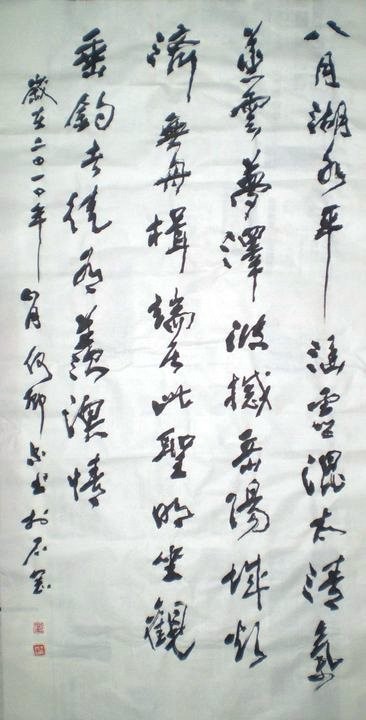 八月湖水平涵虛混太清氣
蒸雲夢澤波撼岳陽城欲
濟無舟楫端居耻聖明坐觀
垂釣者徒有羨漁情
歲在二〇一〇年八月 書於